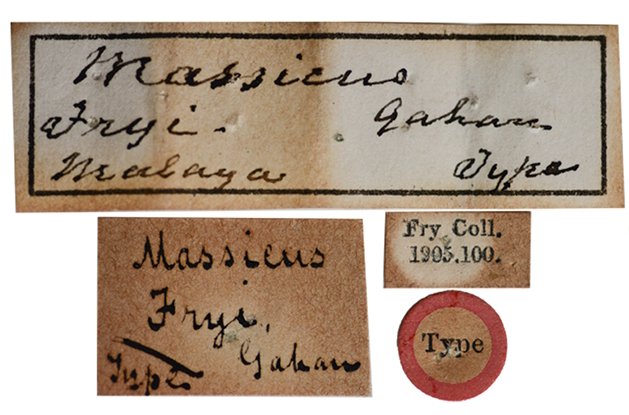 Massicus
Fryi. Gahan
Malaya Type
Massicus
Fryi,
Gahan
Type
Fry Coll.
1905.100.
Type